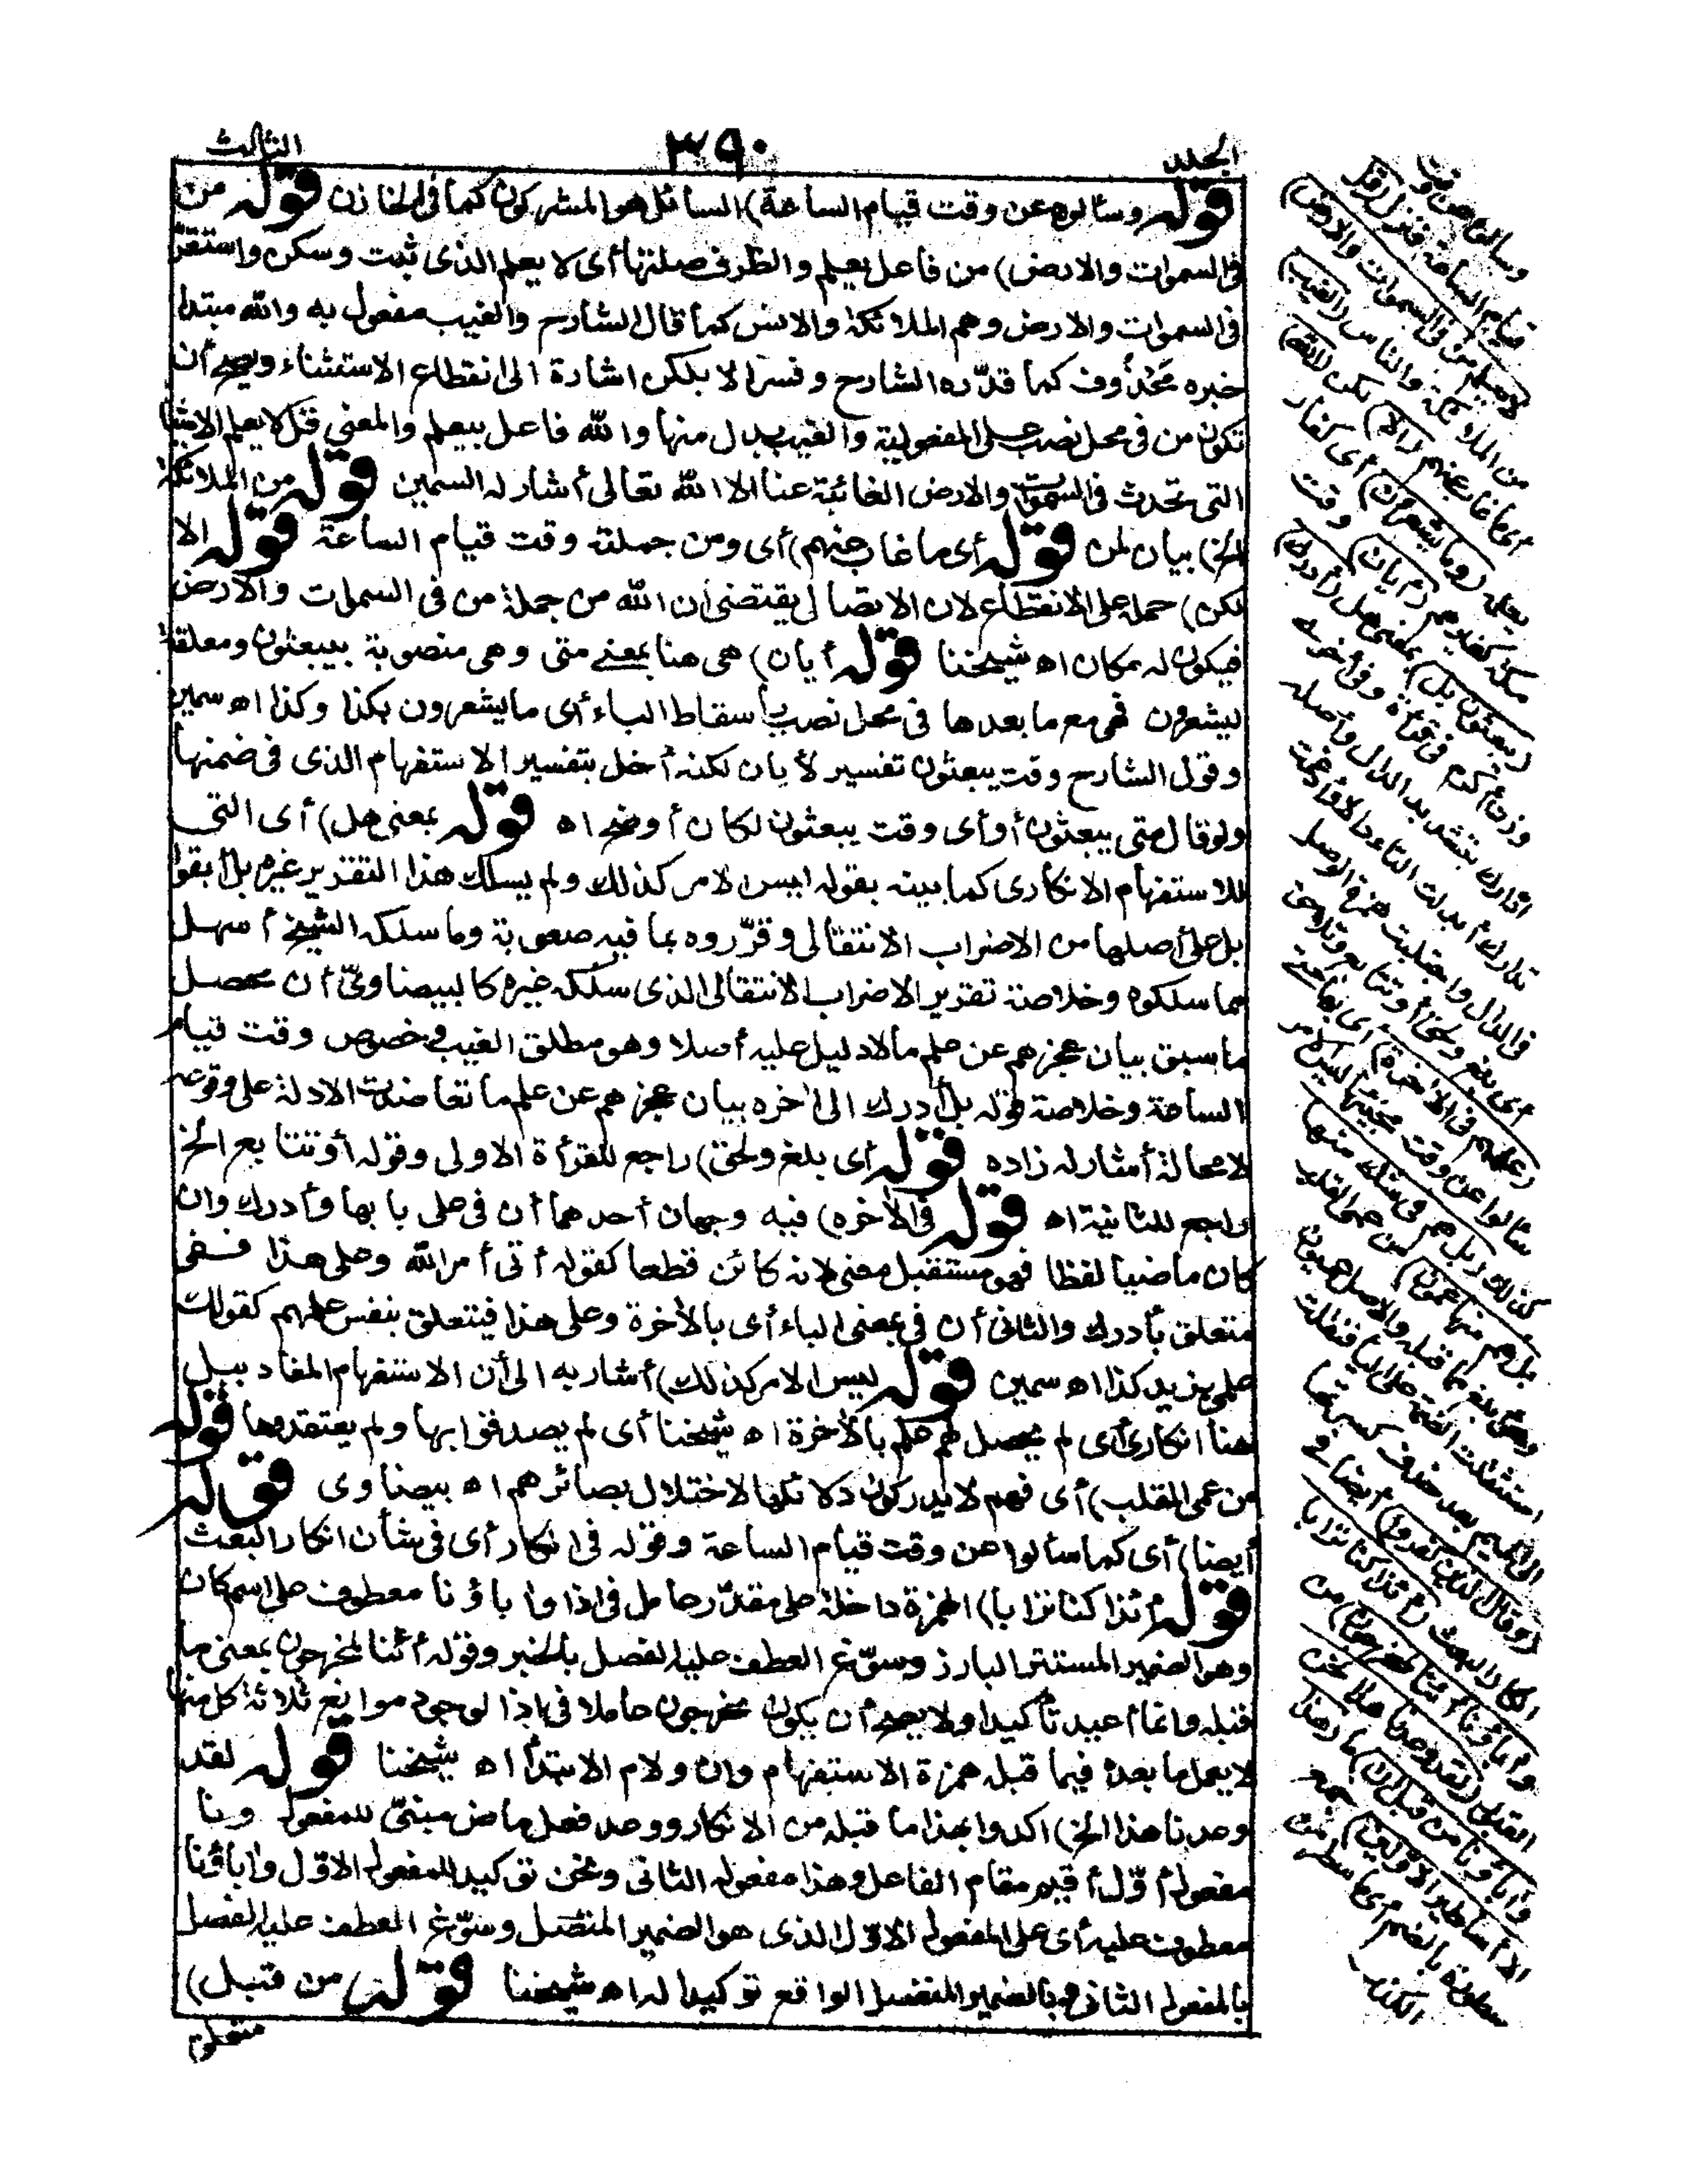 الجلد
٣٩٠
الثالث
قوله وسألوه عن وقت قيام الساعة) السائل هو المشركون كما فى الخازن قوله من
فى السموات والارض) من فاعل يعلم والظرف صلتها أى لا يعلم الذى ثبت وسكن واستقر
فى السموات والارض وهم الملائكة والانس كما قال الشارح والغيب مفعول به والله مبتدا
خبره محذوف كما قدّره الشارح وفسر الا بلكن اشارة الى انقطاع الاستثناء ويصح أن
تكون من فى محل نصب على المفعولية والغيب بدل منها والله فاعل بيعلم والمعنى قل لا يعلم الاشيا
التى تحدث فى السموات والارض الغائبة عنا الا الله تعالى أشار له السمين قوله من الملائكة
الخ) بيان لمن قوله أى ما غاب عنهم) أى ومن جملته وقت قيام الساعة قوله الا
لكن) حمله على الانقطاع لان الاتصال يقتضى أن الله من جملة من فى السموات والارض
فيكون له مكان اه شيخنا قوله أيان) هى هنا بمعنى متى وهى منصوبة بيبعثون ومعلقة
ليشعرون فهى مع ما بعدها فى محل نصب باسقاط الباء أى ما يشعرون بكذا وكذا اه سمين
وقول الشارح وقت يبعثون تفسير لأيان لكنه أخل بتفسير الاستفهام الذى فى ضمنها
ولو قال متى يبعثون أو أى وقت يبعثون لكان أوضح اه قوله بمعنى هل) أى التى
للاستفهام الانكارى كما بينه بقوله ليس الامر كذلك ولم يسلك هذا التقرير غيره بل أبقوا
بل على أصلها من الاضراب الانتقالى وقرّروه بما فيه صعوبة وما سلكه الشيخ أسهل
مما سلكوه وخلاصة تقرير الاضراب الانتقالى الذى سلكه غيره كالبيضاوىّ أن محصل
ما سبق بيان عجزهم عن علم ما لا دليل عليه أصلا وهو مطلق الغيب فى خصوص وقت قيام
الساعة وخلاصة قوله بل أدرك الى اٰخره بيان عجزهم عن علم ما تعاضدت الادلة على وقوعه
لا محالة أشار له زاده قوله أى بلغ ولحق) راجع للقرأة الاولى وقوله أو تتابع الخ
راجع للثانية اه قوله فى الاٰخره) فيه وجهان أحدهما أن فى على بابها وأدرك وان
كان ماضيا لفظا فهو مستقبل معنى لانه كائن قطعا كقوله أتى أمر الله وعلى هذا ففى
متعلق بأدرك والثانى أن فى بمعنى الباء أى بالاٰخرة وعلى هذا فيتعلق بنفس علمهم كقولك
علمى بزيد كذا اه سمين قوله ليس الامر كذلك) أشار به الى أن الاستفهام المفاد ببل
هنا انكارى أى لم يحصل لهم علم بالاٰخرة اه شيخنا أى لم يصدقوا بها ولم يعتقدوها قوله
من عمى القلب) أى فهم لا يدركون دلائلها لاختلال بصائرهم اه بيضاوى قوله
أيضا) أى كما سألوا عن وقت قيام الساعة وقوله فى انكار أى فى شأن انكار البعث
قوله أئذا كنا ترابا) الهمزة داخلة على مقدّر عامل فى اذا واٰباؤنا معطوف على اسم كان
وهو الضمير المستتر البارز وسوّغ العطف عليه الفصل بالخبر وقوله أئنا لمخرجون بمعنى ما
قبله وانما أعيد تأكيدا ولا يصح أن يكون مخرجون عاملا فى اذا لوجود موانع ثلاثة كل منها
لا يعمل ما بعده فيما قبله همزة الاستفهام وان ولام الابتدأ اه شيخنا قوله لقد
وعدنا هذا الخ) اكدوا بهذا ما قبله من الانكار ووعد فعل ماض مبنىّ للمفعول ونا
مفعول أوّل أقيم مقام الفاعل وهذا مفعوله الثانى ونحن توكيد للمفعول الاوّل واٰباؤنا
معطوف عليه أى على المفعول الاوّل الذى هو الضمير المتصل وسوّغ العطف عليه الفصل
بالمفعول الثانى وبالضمير المنفصل الواقع توكيدا له اه شيخنا قوله من قبل)
متعلم
وسألوه عن وقت
قيام الساعة فنزل (قل
لا يعلم من فى السموات والارض)
من الملائكة والناس (الغيب)
أى ما غاب عنهم (الا) لكن (الله)
يعلمه (وما يشعرون) أى كفار
مكة كغيرهم (أيان) وقت
(يبعثون بل) بمعنى هل (أدرك)
وزن أكرم فى قرأة وفى أخرى
ادّارك بتشديد الدال وأصله
تدارك أبدلت التاء دالا وأدغمت
فى الدال واجتلبت همزة الوصل
أى بلغ ولحق أو تتابع وتلاحق
(علمهم فى الاٰخرة) أى بها حتى
سألوا عن وقت مجيئها ليس الامر
كذلك (بل هم فى شك منها
بل هم منها عمون) من عمى القلب
وهو أبلغ مما قبله والاصل عميون
استثقلت الضمة على الياء فنقلت
الى الميم بعد حذف كسرتها
(وقال الذين كفروا) أيضا فى
انكار البعث (أئذا كنا ترابا
واٰباؤنا أئنا لمخرجون) من
القبور (لقد وعدنا هذا نحن
واٰباؤنا من قبل ان) ما (هذا
الا أساطير الاوّلين) جمع
أسطورة بالضم أى ما سطر من
الكذب